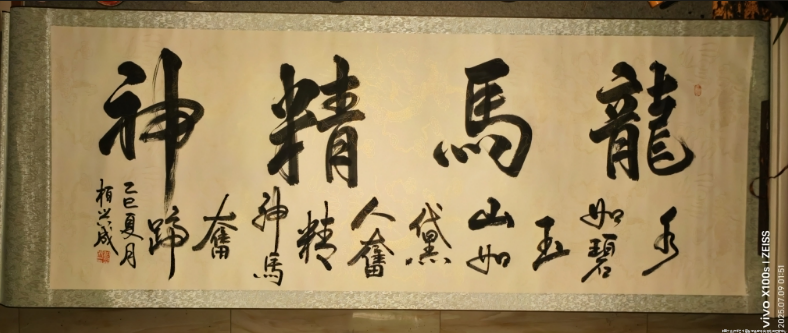 龍馬精神
水如碧玉山如黛
人奮精神馬奮蹄
乙巳夏月
柏興成
vivo X100s | ZEISS
2025.07.09 01:51